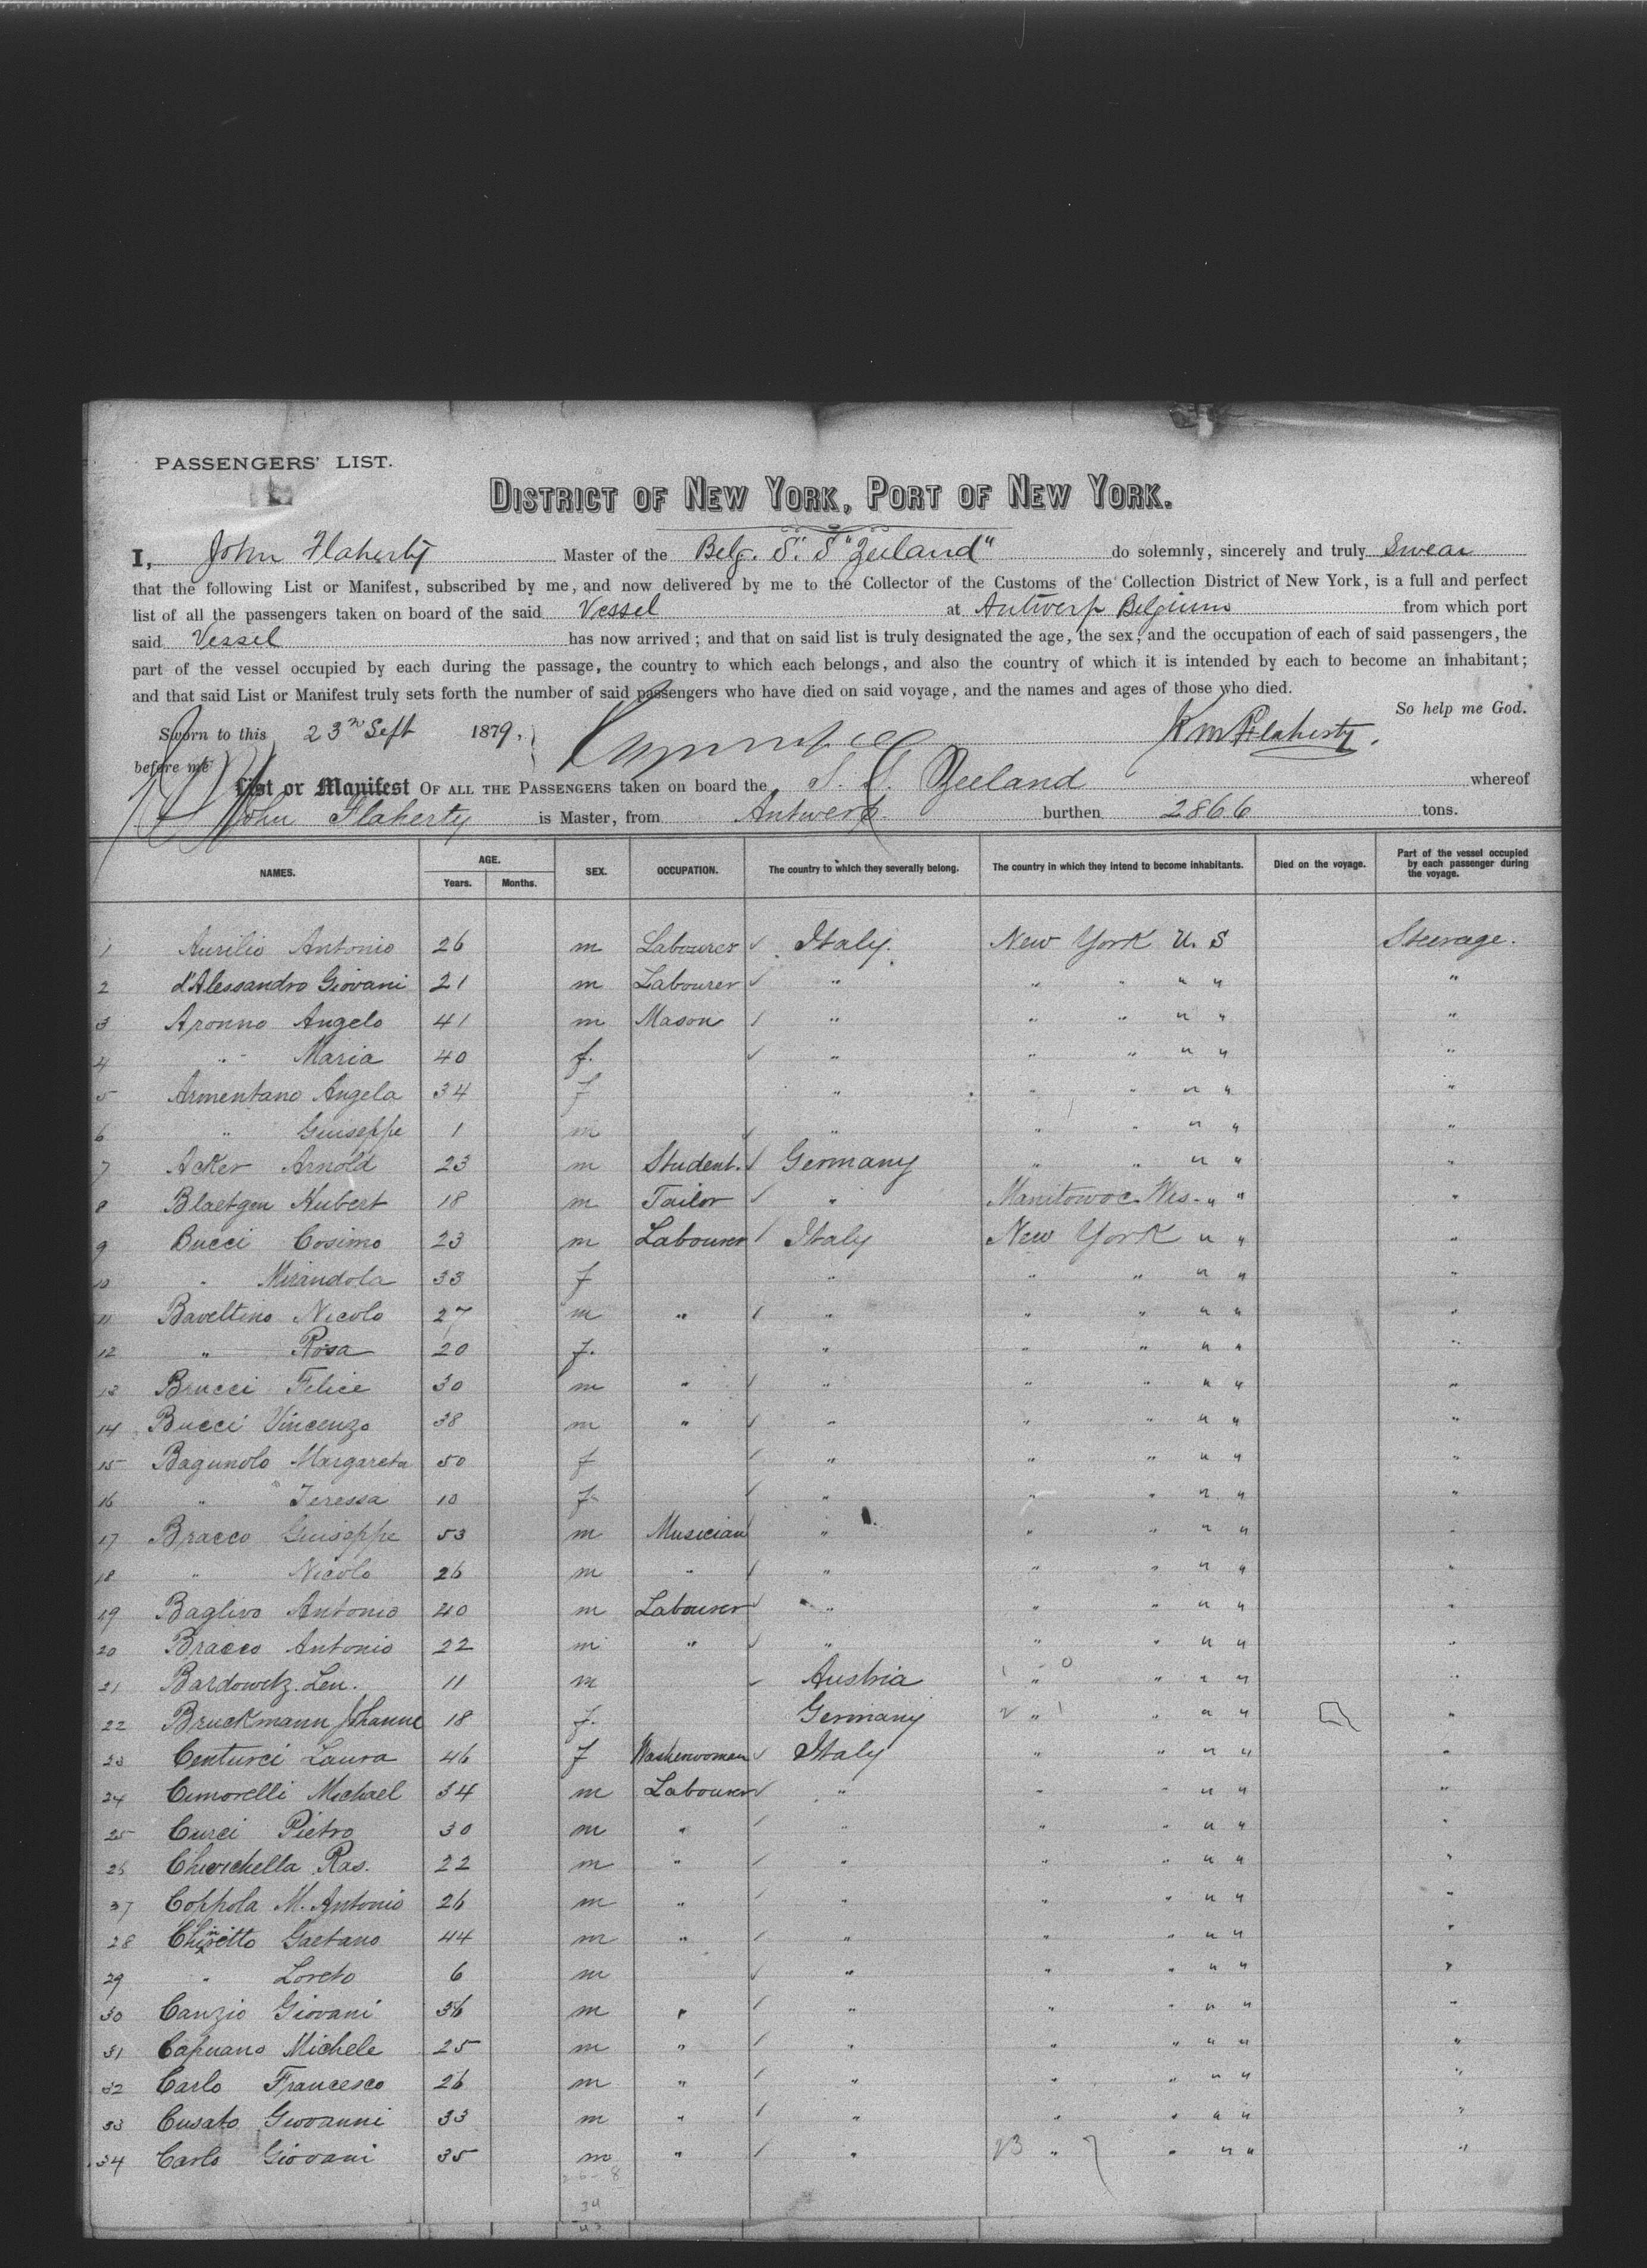 PASSENGERS' LIST.
DISTRICT OF NEW YORK, PORT OF NEW YORK.
I, John Flaherty Master of the Belg. S. S "Zeeland" do solemnly, sincerely and truly Swear
that the following List or Manifest, subscribed by me, and now delivered by me to the Collector of the Customs of the Collection District of New York, is a full and perfect
list of all the passengers taken on board of the said Vessel at Antwerp Belgium from which port
said Vessel has now arrived; and that on said list is truly designated the age, the sex, and the occupation of each of said passengers, the
part of the vessel occupied by each during the passage, the country to which each belongs, and also the country of which it is intended by each to become an inhabitant;
and that said List or Manifest truly sets forth the number of said passengers who have died on said voyage, and the names and ages of those who died.
So help me God.
Sworn to this 23 Sept 1879, Flaherty.
before me
List or Manifest OF ALL THE PASSENGERS taken on board the S. S. Zeeland whereof
John Flaherty is Master, from Antwerp burthen 2866 tons.
NAMES. AGE. Years. Months. SEX. OCCUPATION. The country to which they severally belong. The country in which they intend to become inhabitants. Died on the voyage. Part of the vessel occupied by each passenger during the voyage.
1 Aurilio Antonio 26 m Labourer Italy. New York U. S Steerage.
2 d'Alessandro Giovani 21 m Labourer " " " " " "
3 Aronno Angelo 41 m Mason " " " " " "
4 " Maria 40 f. " " " " " "
5 Armentano Angela 34 f " " " " " "
6 " Guiseppe 1 m " " " " " "
7 Acker Arnold 23 m Student. Germany " " " " "
8 Blaetgen Hubert 18 m Tailor " Manitowoc Wis. " " "
9 Bucci Cosimo 23 m Labourer Italy New York " " "
10 " Mirandola 33 f " " " " " "
11 Baveltino Nicolo 27 m " " " " " " "
12 " Rosa 20 f. " " " " " "
13 Brucci Felice 30 m " " " " " " "
14 Bucci Vincenzo 38 m " " " " " " "
15 Bagunolo Margareta 50 f " " " " " "
16 " Teressa 10 f " " " " " "
17 Bracco Guiseppe 53 m Musician " " " " " "
18 " Nicolo 26 m " " " " " " "
19 Baglivo Antonio 40 m Labourer " " " " " "
20 Bracco Antonio 22 m " " " " " " "
21 Bardowitz. Leu. 11 m Austria " " " " "
22 Bruckmann Johanne 18 f. Germany " " " " "
23 Centurci Laura 46 f Washerwoman Italy " " " " "
24 Cimorelli Michael 34 m Labourer " " " " " "
25 Curci Pietro 30 m " " " " " " "
26 Chierichella Ras. 22 m " " " " " " "
27 Coppola M. Antonio 26 m " " " " " " "
28 Gaetano 44 m " " " " " " "
29 " Loreto 6 m " " " " " "
30 Canzio Giovani 36 m " " " " " " "
31 Capuano Michele 25 m " " " " " " "
32 Carlo Francesco 26 m " " " " " " "
33 Cusato Giovanni 33 m " " " " " " "
34 Carlo Giovani 35 m " " " " " " "
34